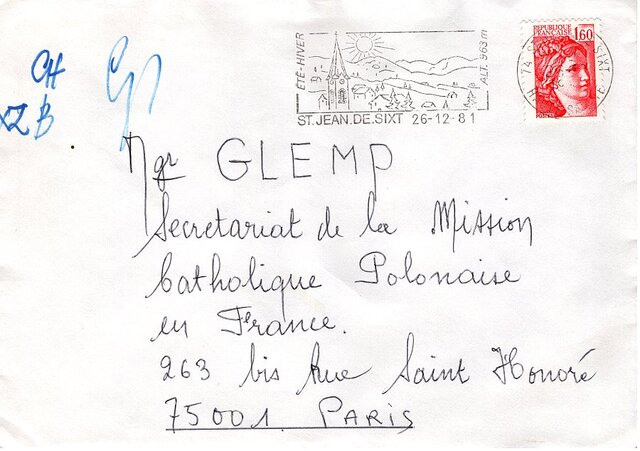 ÉTÉ-HIVER
ALT. 963 m
ST. JEAN. DE. SIXT 26-12-81
REPUBLIQUE
FRANÇAISE
1,60
POSTES
74 S SIXT
CH
XZ B
Mgr GLEMP
Secretariat de la Mission
Catholique Polonaise
en France.
263 bis Rue Saint Honoré
75001 PARIS